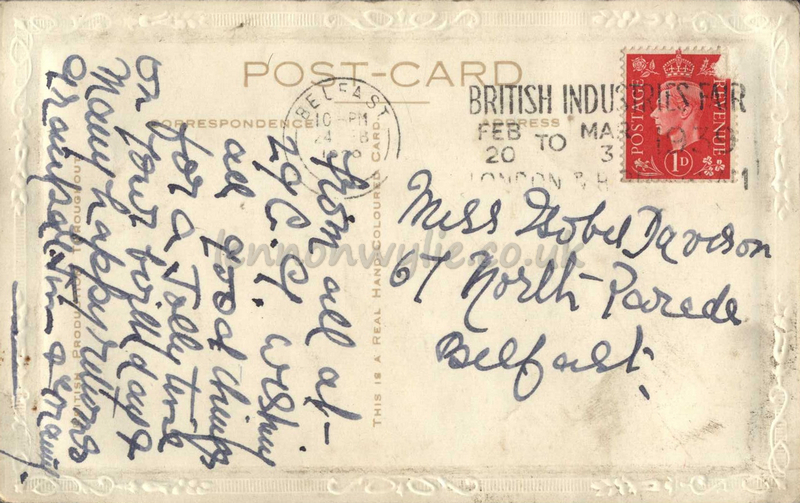 POST-CARD
CORRESPONDENCE
ADDRESS
BELFAST
10 - PM
24
BRITISH INDUSTRIES FAIR
FEB TO MAR 1939
20 3
LONDON &
POSTAGE
REVENUE
1D
from all at
29 C. G. wishing
all good things
for a Jolly time
on your birthday &
Many happy returns
Grandpa & Granny
Miss Isobel Davison
67 North Parade
Belfast.
THIS IS A REAL HAND COLOURED CARD.
BRITISH PRODUCTION THROUGHOUT
lennonwylie.co.uk